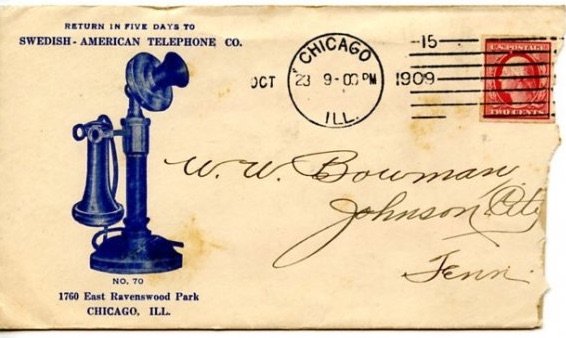 RETURN IN FIVE DAYS TO
SWEDISH-AMERICAN TELEPHONE CO.
CHICAGO
ILL.
OCT 23 9-00 PM 1909
15
U.S. POSTAGE
TWO CENTS
W. W. Bowman,
Johnson City
Tenn.
NO. 70
1760 East Ravenswood Park
CHICAGO, ILL.